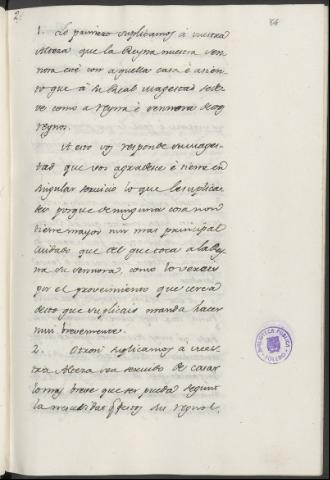 2
84
1. Lo primero suplicamos á vuestra
Alteza que la Reyna nuestra sen
nora esté con aquella casa é asien
to que á su Real magestad se de
ve como a reyna é sennora destos
regnos.
A esto vos responde su mages
tad que vos agradesce é tiene en
singular servicio lo que le suplica
des porque de ninguna cosa non
tiene mayor nin mas principal
cuidado que del que toca a la Rey
na su sennora, como lo vereis
por el proveimiento que cerca
desto que suplicais manda hacer
mui brevemente.
2. Otrosi suplicamos á vues
tra Alteza sea servido de casar
lo mas breve que ser pueda segunt
la necesidad destos sus regnos,
BIBLIOTECA PUBLICA
TOLEDO